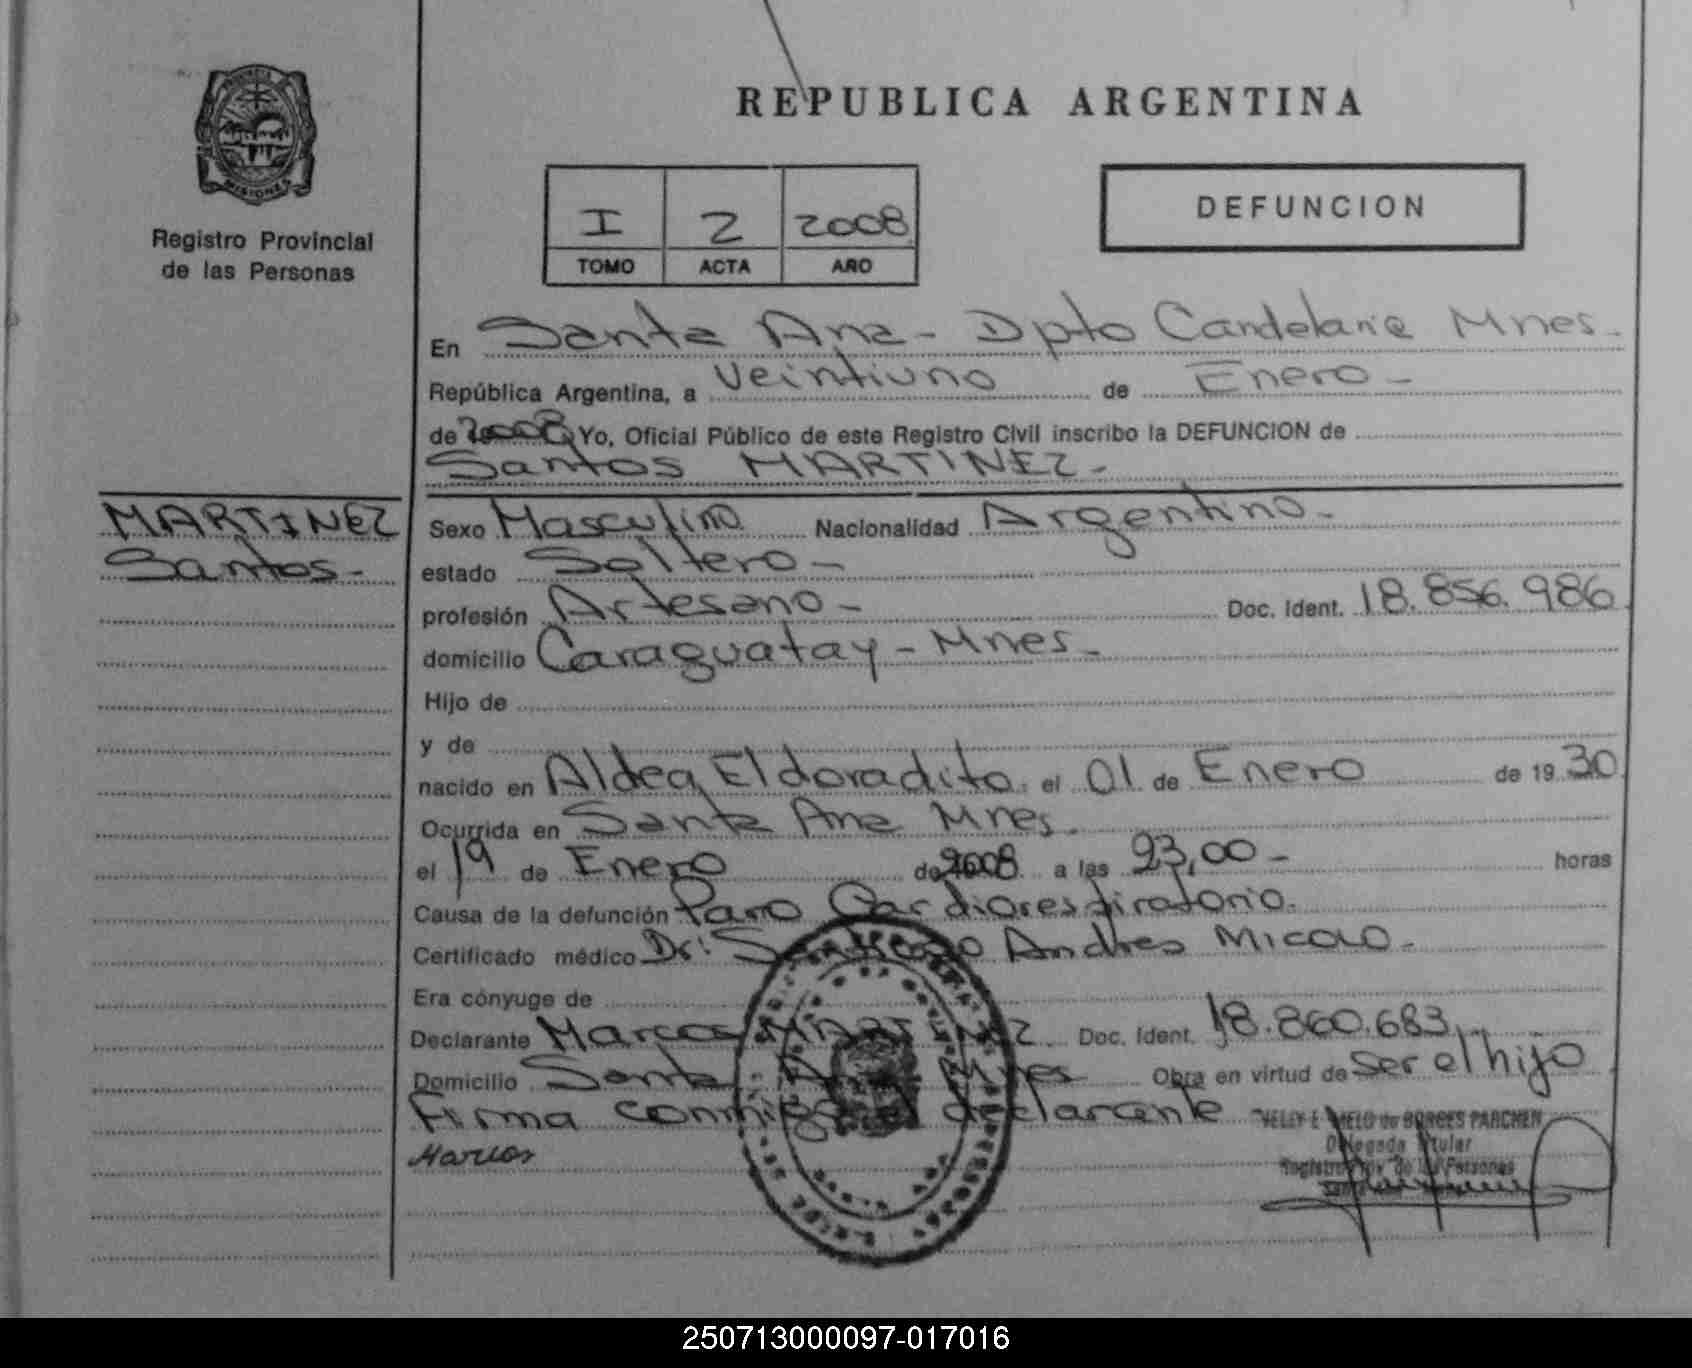 REPUBLICA ARGENTINA
PROVINCIA
MISIONES
Registro Provincial
de las Personas
I 2 2008
TOMO ACTA AÑO
DEFUNCION
En Santa Ana - Dpto Candelaria Mnes -
República Argentina, a Veintiuno de Enero -
de 2008 Yo, Oficial Público de este Registro Civil inscribo la DEFUNCION de
Santos MARTINEZ -
MARTINEZ
Santos -
Sexo Masculino Nacionalidad Argentino -
estado Soltero -
profesión Artesano - Doc. Ident. 18.856.986
domicilio Caraguatay - Mnes -
Hijo de
y de
nacido en Aldea Eldoradito. el 01 de Enero de 1930
Ocurrida en Santa Ana Mnes.
el 19 de Enero de 2008 a las 23,00 - horas
Causa de la defunción Paro Cardiorespiratorio.
Certificado médico Dr: Andres Micolo -
Era cónyuge de
Declarante Marcos MARTINEZ Doc. Ident. 18.860.683
Domicilio Santa Ana Mnes Obra en virtud de ser el hijo
Firma conmigo el declarante
NELLY E. MELO de BORGES PARCHEN
Delegada Titular
Registro Prov. de las Personas
Marcos
250713000097-017016